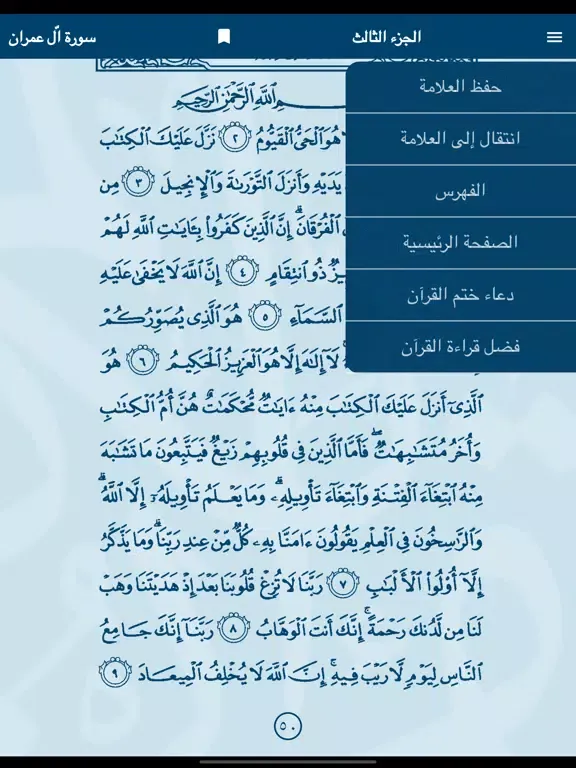 الجزء الثالث
سورة آل عمران
حفظ العلامة
انتقال إلى العلامة
الفهرس
الصفحة الرئيسية
دعاء ختم القرآن
فضل قراءة القرآن
ٱللَّهِ ٱلرَّحْمَٰنِ ٱلرَّحِيمِ
هُوَ ٱلْحَىُّ ٱلْقَيُّومُ ٢ نَزَّلَ عَلَيْكَ ٱلْكِتَٰبَ
يَدَيْهِ وَأَنزَلَ ٱلتَّوْرَىٰةَ وَٱلْإِنجِيلَ ٣ مِن
ٱلْفُرْقَانَۗ إِنَّ ٱلَّذِينَ كَفَرُوا۟ بِـَٔايَٰتِ ٱللَّهِ لَهُمْ
ذُو ٱنتِقَامٍ ٤ إِنَّ ٱللَّهَ لَا يَخْفَىٰ عَلَيْهِ
ٱلسَّمَآءِ ٥ هُوَ ٱلَّذِى يُصَوِّرُكُمْ
لَآ إِلَٰهَ إِلَّا هُوَ ٱلْعَزِيزُ ٱلْحَكِيمُ ٦ هُوَ
ٱلَّذِىٓ أَنزَلَ عَلَيْكَ ٱلْكِتَٰبَ مِنْهُ ءَايَٰتٌ مُّحْكَمَٰتٌ هُنَّ أُمُّ ٱلْكِتَٰبِ
وَأُخَرُ مُتَشَٰبِهَٰتٌۖ فَأَمَّا ٱلَّذِينَ فِى قُلُوبِهِمْ زَيْغٌ فَيَتَّبِعُونَ مَا تَشَٰبَهَ
مِنْهُ ٱبْتِغَآءَ ٱلْفِتْنَةِ وَٱبْتِغَآءَ تَأْوِيلِهِۦۗ وَمَا يَعْلَمُ تَأْوِيلَهُۥٓ إِلَّا ٱللَّهُۗ
وَٱلرَّٰسِخُونَ فِى ٱلْعِلْمِ يَقُولُونَ ءَامَنَّا بِهِۦ كُلٌّ مِّنْ عِندِ رَبِّنَاۗ وَمَا يَذَّكَّرُ
إِلَّآ أُو۟لُوا۟ ٱلْأَلْبَٰبِ ٧ رَبَّنَا لَا تُزِغْ قُلُوبَنَا بَعْدَ إِذْ هَدَيْتَنَا وَهَبْ
لَنَا مِن لَّدُنكَ رَحْمَةًۚ إِنَّكَ أَنتَ ٱلْوَهَّابُ ٨ رَبَّنَآ إِنَّكَ جَامِعُ
ٱلنَّاسِ لِيَوْمٍ لَّا رَيْبَ فِيهِۚ إِنَّ ٱللَّهَ لَا يُخْلِفُ ٱلْمِيعَادَ ٩
٥٠